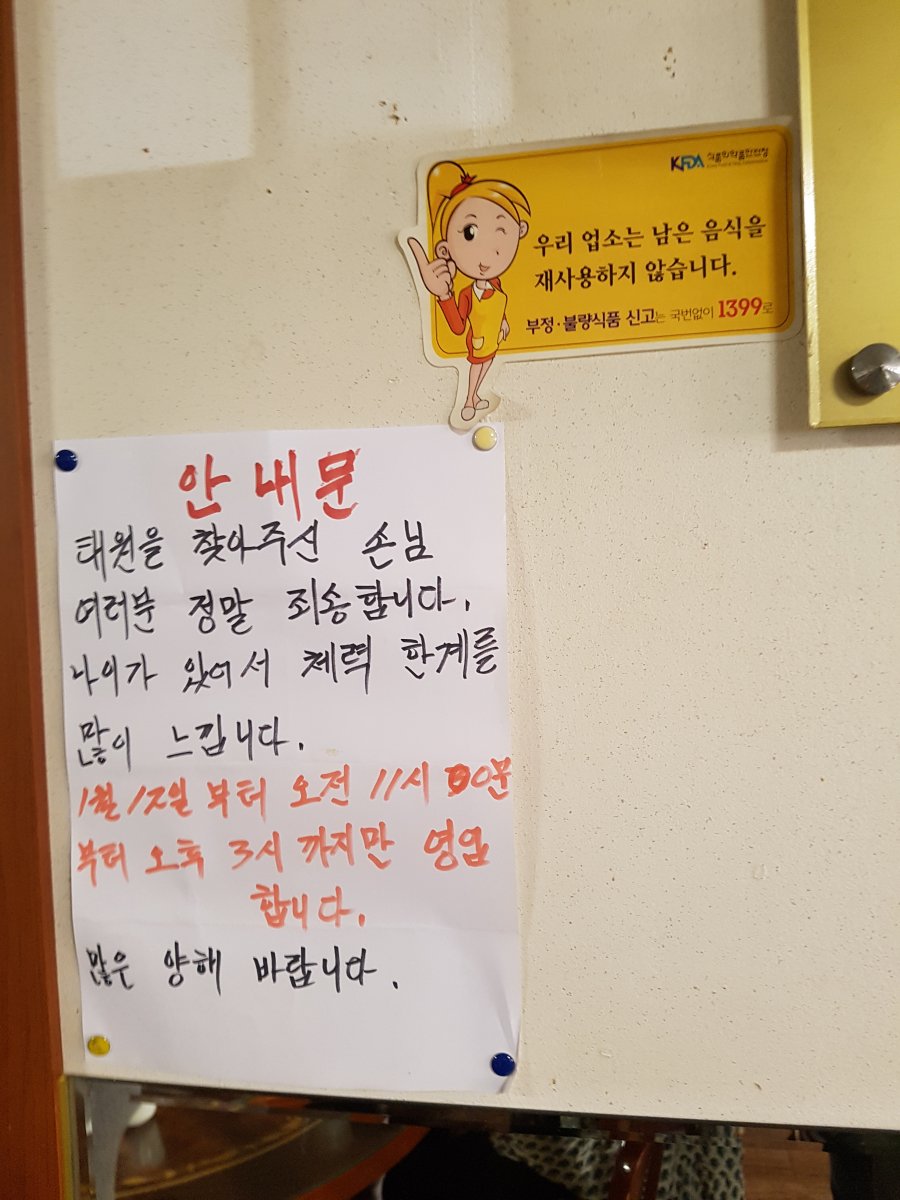 KFDA 식품의약품안전청
우리 업소는 남은 음식을
재사용하지 않습니다.
부정·불량식품 신고는 국번없이 1399로
안내문
태원을 찾아주신 손님
여러분 정말 죄송합니다.
나이가 있어서 체력 한계를
많이 느낍니다.
1월 12일 부터 오전 11시 00분
부터 오후 3시 까지만 영업
합니다.
많은 양해 바랍니다.